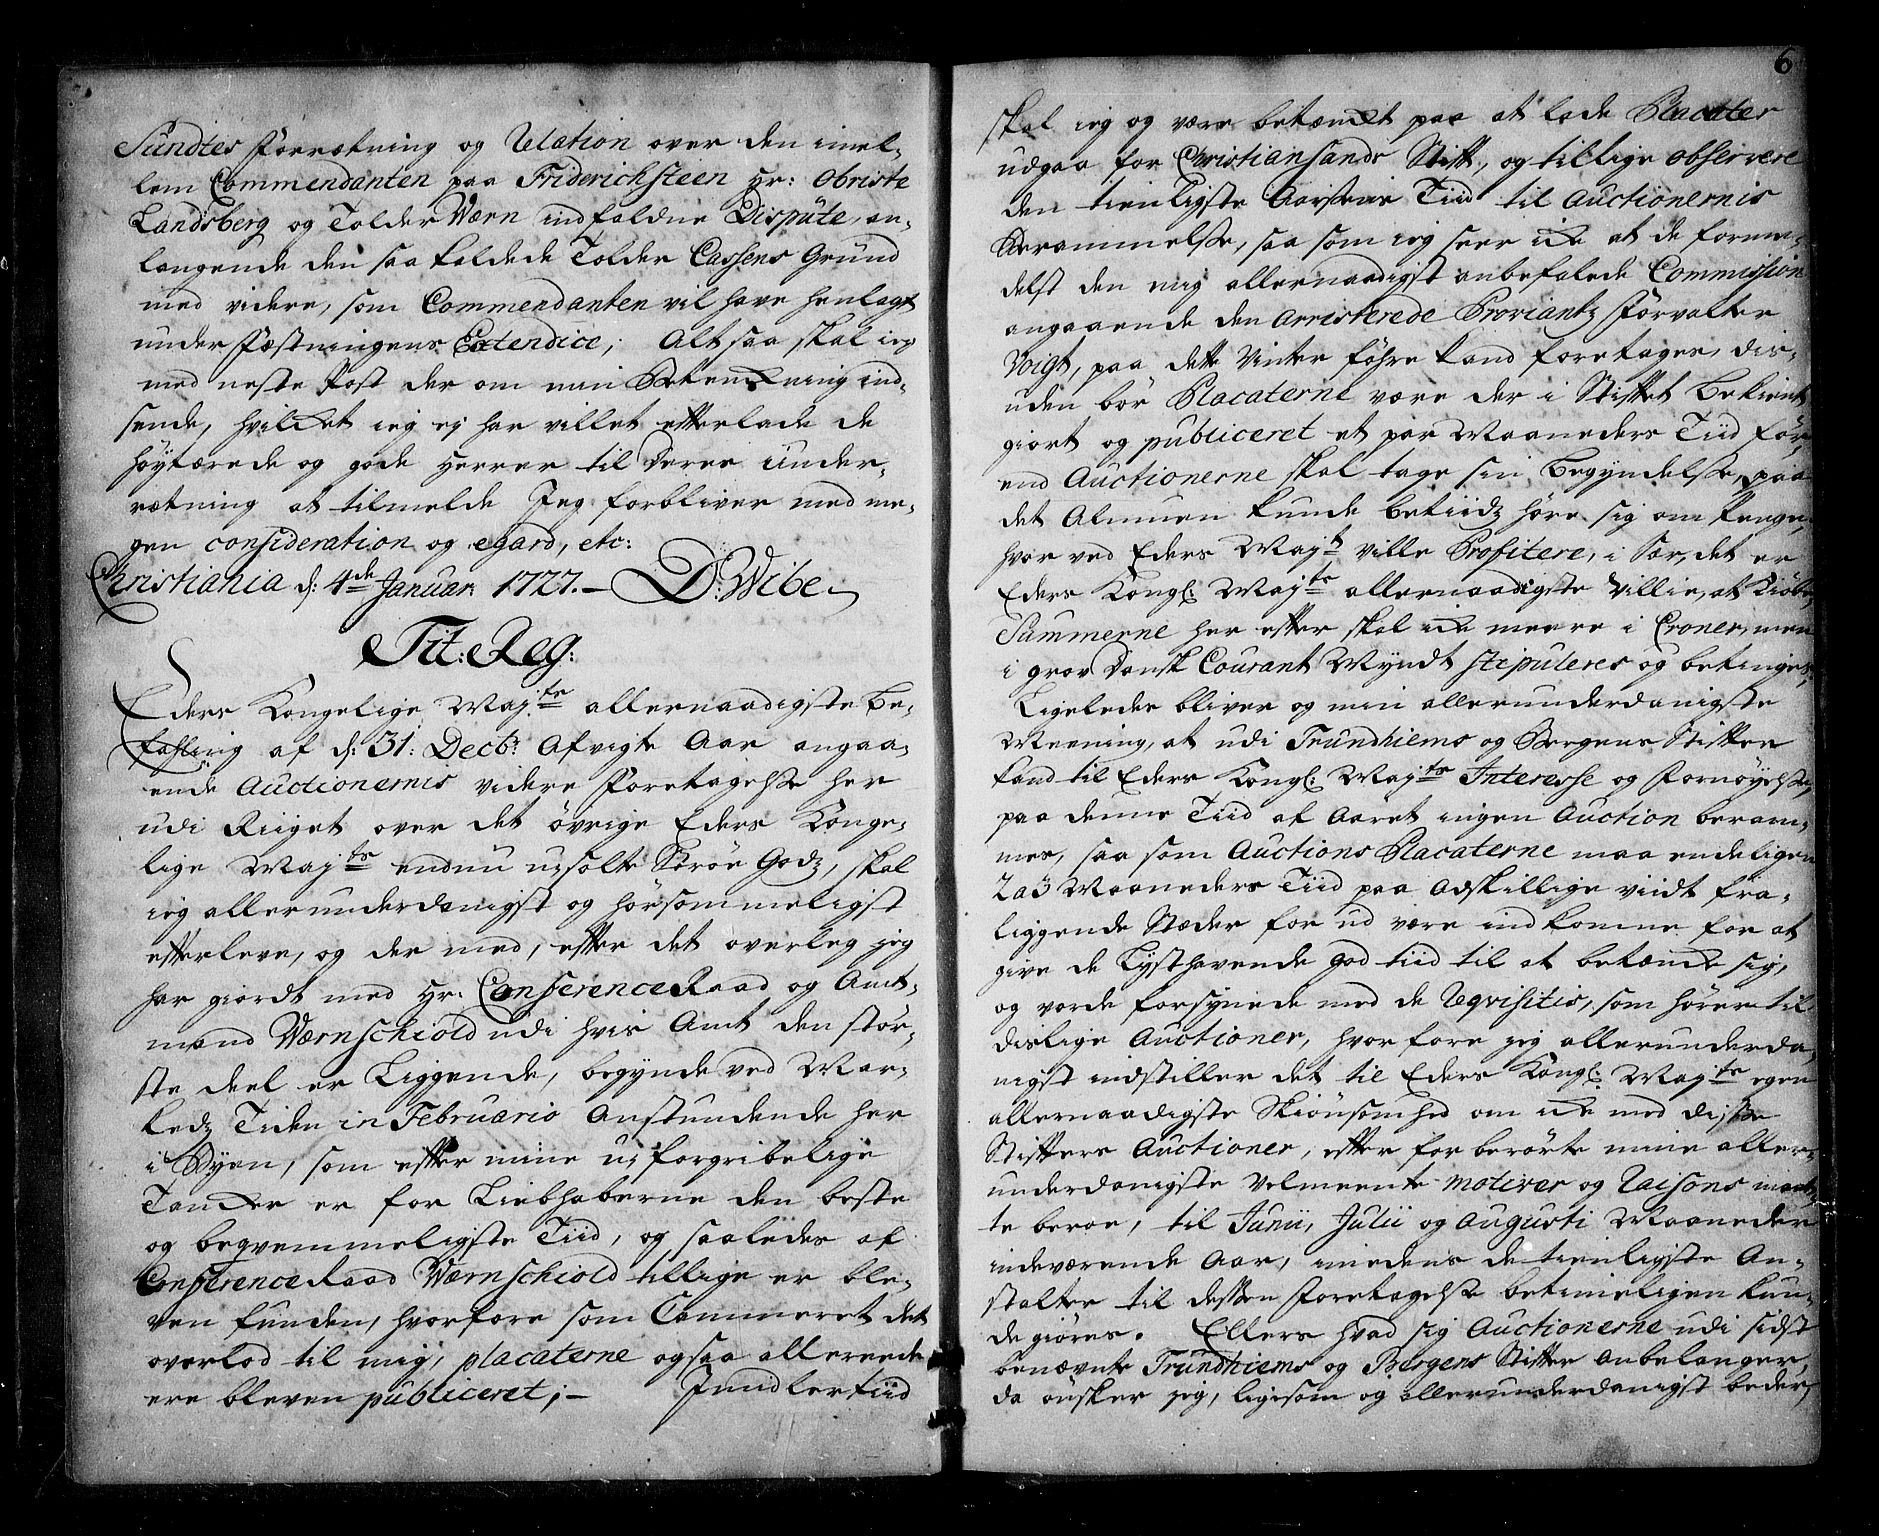 Sundtes Forretning og Relation over den imel-
lem Commendanten paa Friderichsteen Hr: Obriste
Landsberg og Tolder Værn indfaldne Dispüte, an-
langende den saa kaldede Tolder Cassens Grund
med videre, som Commendanten vil have henlagt
under Fæstningens Extendice; Altsaa skal ieg
med neste Post der om min Betenkning ind-
sende, hvilket ieg ej har villet efterlade de
höybaarede og gode Herrer til Deres under-
retning at tilmelde Jeg forbliver med me-
gen consideration og egard, etc:
Christiania d: 4de Januar: 1727. – D: Wibe
Tit: Reg:
Eders Kongelige Maj:ts allernaadigste Be-
faling af d: 31: Decbr: Afvigte Aar angaa-
ende Auctionernis videre Foretagelse her
udi Riiget over det övrige Eders Konge-
lige Maj:ts endnu usolte Strøe Godz, skal
ieg allerunderdanigst og hörsommeligst
efterleve, og der med, efter det overleg jeg
har giordt med Hr: Conference Raad og Amt-
mand Værnschiold udi hvis Amt den stör-
ste deel er Liggende, begynde ved Mar-
kedz Tiden in Februario Anstundende her
i Byen, som efter mine uforgribelige
Tanker er for Liebhaberne den beste
og beqvemmeligste Tiid, og saaledes af
Conference Raad Værnschiold tillige er ble-
ven funden, hvorfore som Cammeret det
overlod til mig, placaterne ogsaa allereede
ere bleven publiceret; – Imidlertiid
6
skal ieg og være betænkt paa at lade Placater
udgaa for Christiansands Stift, og tillige observere
den tienligste Aarsens Tiid til Auctionernis
Berammelse, saa som ieg seer ikke at de formi-
delst den mig allernaadigst anbefalede Commission
angaaende den Arresterede Proviantz Forvalter
Voigt, paa dette Vinter föhre kand foretages, dis-
uden bör Placaterne være der i Stiftet Bekient
giort og publiceret et par Maaneders Tiid för,
end Auctionerne skal tage sin begyndelse, paa
det Almuen kunde betiidz höre sig om Penge,
hvor ved Eders Maj:t ville Profitere, i Sær, det er
Eders Kongl: Maj:ts allernaadigste Villie, at Kiöbe
Summerne her efter skal ikke meere i Croner, men
i grov Dansk Courant Myndt stipuleres og betinges;
Ligeledes bliver og min allerunderdanigste
Meening, at udi Trundhiems og Bergens Stifter
kand til Eders Kongl: Maj:ts Interesse og Fornöyelse
paa denne Tiid af Aaret ingen Auction beram-
mes, saa som Auctions Placaterne maa endeligen
2 a 3 Maaneders Tiid paa Adskillige viidt fra-
liggende Stæder for ud være indkomne for at
give de Lysthavende god tiid til at betænke sig,
og vorde forsynede med de Reqvisitis, som hörer til
dislige Auctioner, hvorfore jeg allerunderda-
nigst indstiller det til Eders Kongl: Maj:ts egen
allernaadigste Skiönsomhed om ikke med disse
Stifters Auctioner, efter forberörte mine aller-
underdanigste Velmeente motiver og Raisons maat-
te beroe, til Junii, Julii og Augusti Maaneder
indeværende Aar, imedens de tienligste An-
stalter til dessen Foretagelse betimeligen kun-
de giöres. Ellers hvad sig Auctionerne udi sidst
benævnte Trundhiems og Bergens Stifter Anbelanger,
da önsker jeg, ligesom og allerunderdanigst beder,